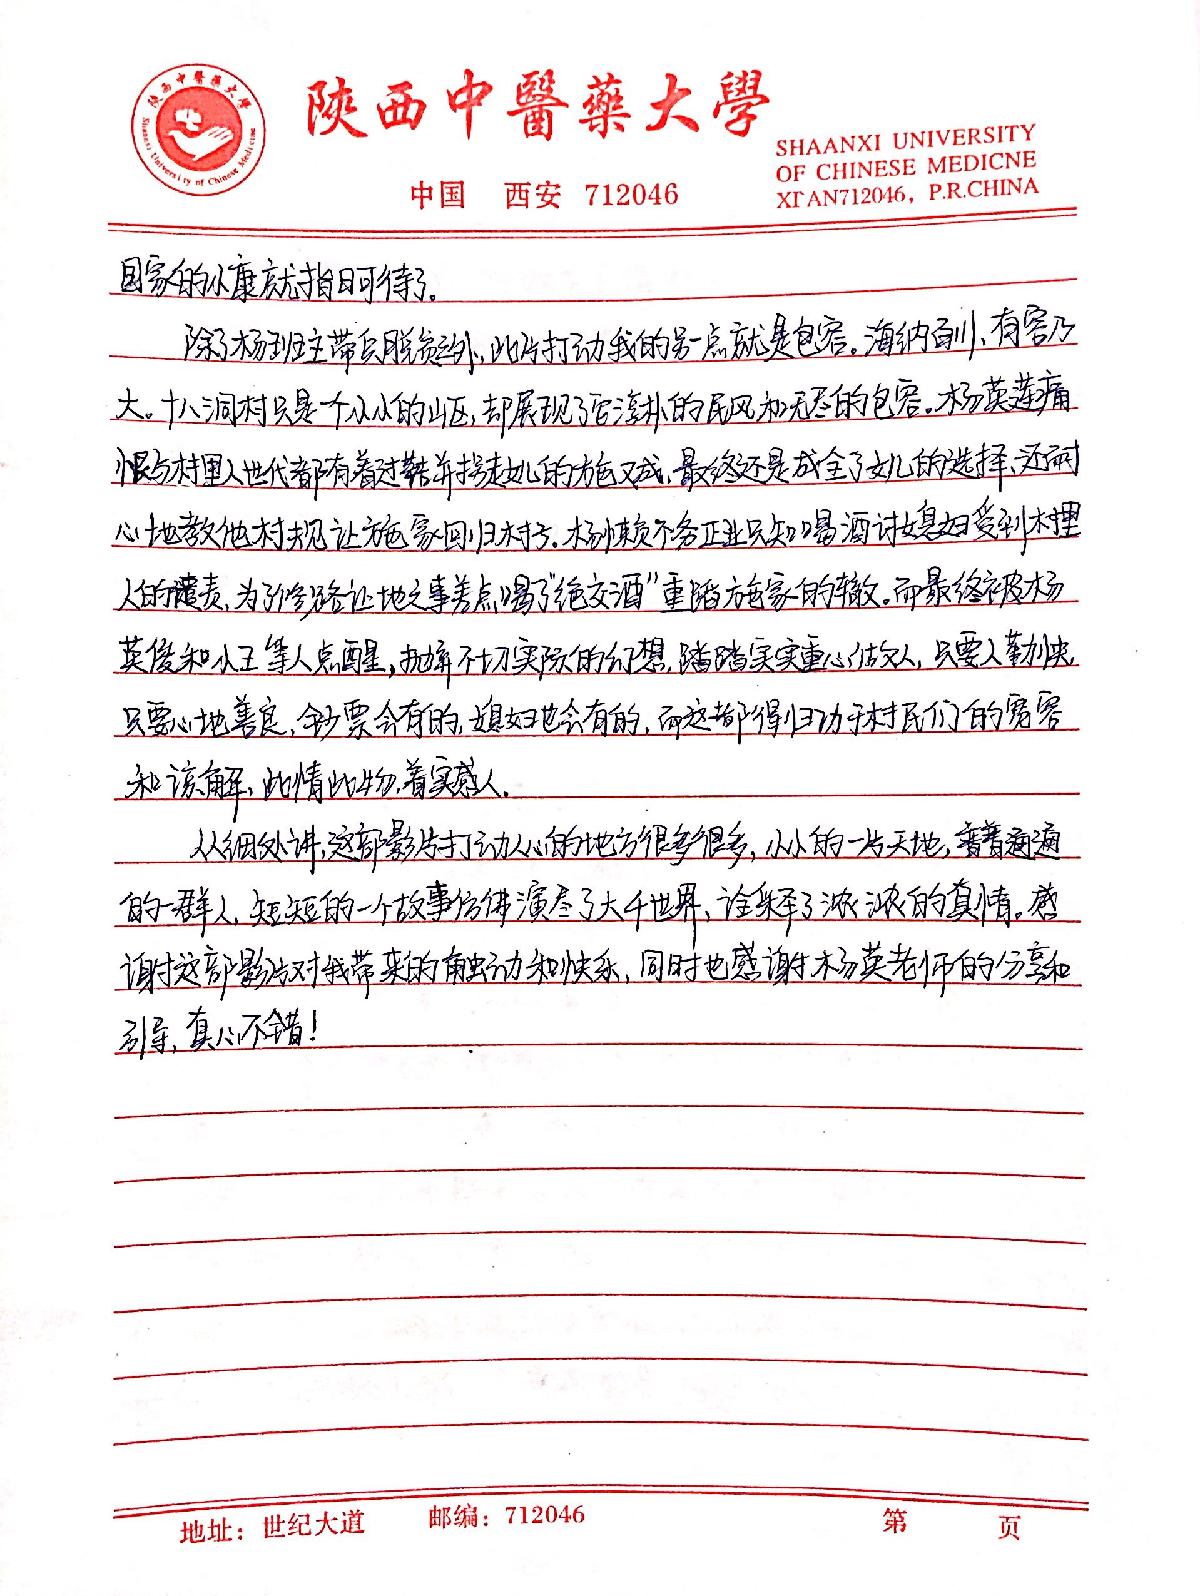 陝西中醫藥大學
Shaanxi University of Chinese Medicine
陝西中醫藥大學
SHAANXI UNIVERSITY
OF CHINESE MEDICNE
XI'AN712046, P.R.CHINA
中国 西安 712046
国家的小康就指日可待了。
除了杨班主带兵脱贫之外,此片打动我的另一点就是包容。海纳百川、有容乃
大。十八洞村只是一个小小的山区,却展现了它淳朴的民风和无尽的包容。杨英莲痛
恨与村里人世代都有着过鞋并拐走女儿的施又成,最终还是成全了女儿的选择,还耐
心地教他村规让施家回归村子。杨懒不务正业只知喝酒讨媳妇受到村里
人的谴责,为了修路让地之事差点喝了"绝交酒"重蹈施家的辙。而最终被杨
英俊和小王等人点醒,抛弃不切实际的幻想,踏踏实实重心做人,只要人勤快,
只要心地善良,钞票会有的,媳妇也会有的,而这都得归功于村民们的宽容
和谅解,此情此物,着实感人。
从细处讲,这部影片打动人心的地方很多很多,小小的一片天地,普普通通
的一群人,短短的一个故事仿佛演尽了大千世界、诠释了浓浓的真情。感
谢这部影片对我带来的触动和快乐,同时也感谢杨英老师的分享和
引导,真心不错!
地址:世纪大道 邮编:712046 第 页